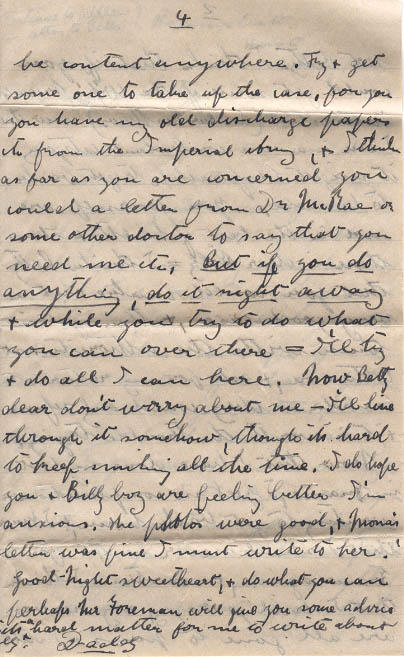 4
be content anywhere. Try & get
some one to take up the case, for you
you have my old discharge papers
etc from the Imperial Army, & I think
as far as you are concerned you
could a letter from Dr McRae or
some other doctor to say that you
need me etc. But if you do
anything, do it right away
& while you try to do what
you can over there = I'll try
& do all I can here. Now Betty
dear don't worry about me - I'll live
through it somehow, though its hard
to keep smiling all the time. I do hope
you & Billy boy are feeling better I'm
anxious. The photos were good, & Mona's
letter was fine I must write to her.
Good-Night sweetheart, & do what you can
perhaps Mr Foreman will give you some advice
its a hard matter for me to write about
Daddy